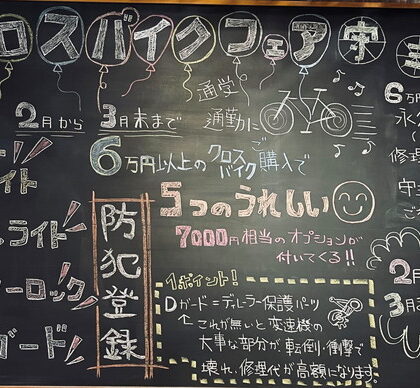 ロスバイクフェア実
通学
通勤に
2月から 3月末まで
6万円以上の クロスバイク ご購入で
5つのうれしい
7000円相当のオプションが
付いてくる!!
イト
ライト
ーロック
ガード
防犯登録
1ポイント!
Dガード=ディレーラー保護パーツ
これが無いと変速機の
大事な部分が転倒・衝撃で
壊れ、修理代が高額になります
6万
永久
修理
中
ご
2月
3月